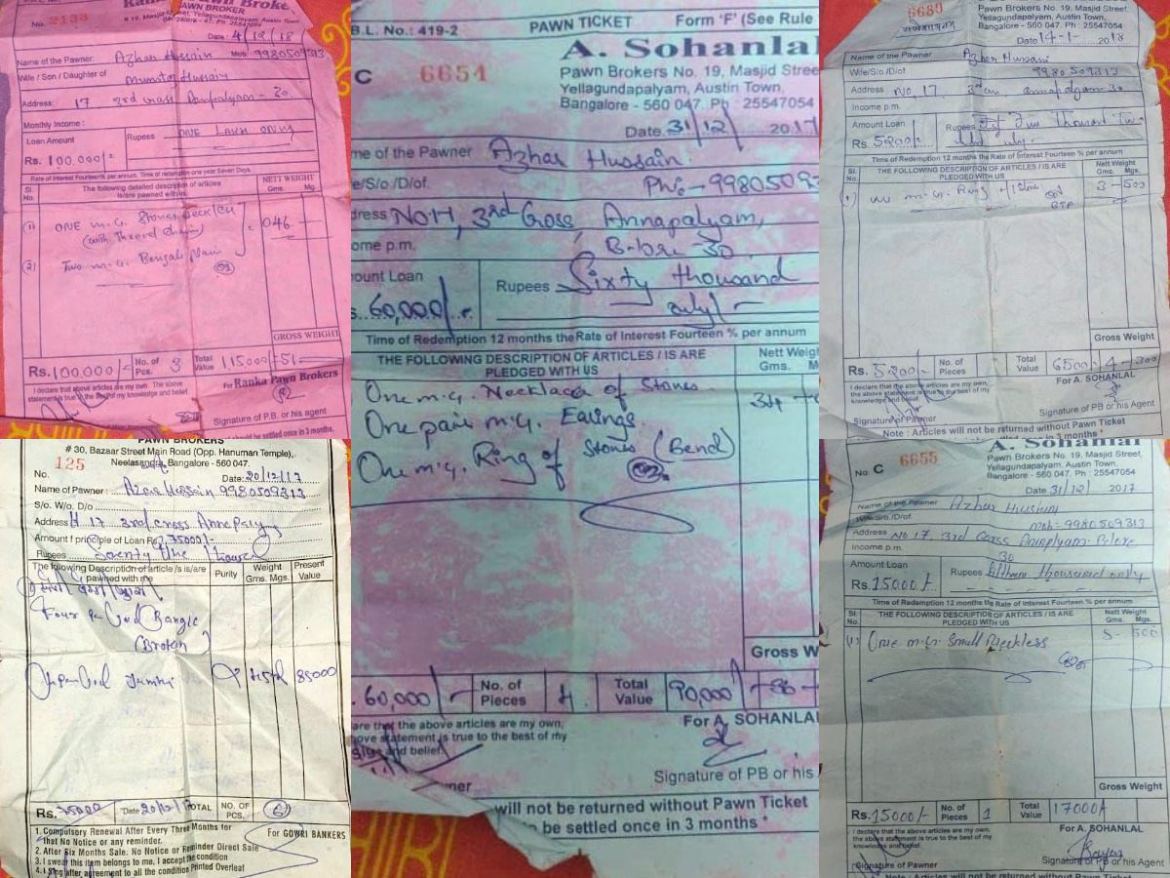 No. 2133
PAWN BROKER
# 19, Masjid Street, Yellagundapalyam, Austin Town
Date: 4/12/18
Name of the Pawner: Azhar Hussain Mob: 9980509313
Wife / Son / Daughter of Mumtaz Hussain
Address: 17 3rd Cross
Monthly Income :
Loan Amount
Rs. 100,000/-
Rupees ONE Lakh only
Rate of Interest Fourteen% per annum. Time of redemption one year Seven Days.
Sl. No.
The following detailed description of articles is/are pawned with us.
NETT WEIGHT
Gms. Mg.
(1) ONE m.G. Stones Neckles
(with Thread chain)
046
(2) Two m.G. Bengals Plain
GROSS WEIGHT
Rs. 100,000/- No. of Pcs. 3 Total Value 115000 51
I declare that above articles are my own. The above statement is true to the best of my knowledge and belief.
For Ranka Pawn Brokers
Signature of P.B. or his agent
should be settled once in 3 months.
B.L. No.: 419-2 PAWN TICKET Form 'F' (See Rule
A. Sohanlal
C 6654
Pawn Brokers No. 19, Masjid Stree
Yellagundapalyam, Austin Town,
Bangalore - 560 047. Ph : 25547054
Date 31/12/ 2017
me of the Pawner Azhar Hussain
e/S/o /D/of. Ph:- 99805093
dress No H, 3rd Cross, Annapalyam,
ome p.m. B-lore 30
ount Loan
s. 60,000/-
Rupees Sixty thousand
only -
Time of Redemption 12 months the Rate of Interest Fourteen % per annum
THE FOLLOWING DESCRIPTION OF ARTICLES / IS ARE PLEDGED WITH US
Nett Weigh
Gms. M
One m.G. Necklace of Stones
34
One pair m.G. Earings
One m.G. Ring of Stones (Bend)
Gross W
. 60,000/- No. of Pieces 4 Total Value 90,000/- 36
are that the above articles are my own,
ove statement is true to the best of my
dge and belief.
For A. SOHANLAL
wner
Signature of PB or his
will not be returned without Pawn Ticket
be settled once in 3 months *
6680
Pawn Brokers No. 19, Masjid Street,
Yellagundapalyam, Austin Town,
Bangalore - 560 047. Ph : 25547054
Date 14-1- 2018
Name of the Pawner Azhar Hussain
Wife/S/o /D/of 9980509313
Address No. 17 3rd Annapalyam 30
Income p.m.
Amount Loan
Rs. 5200/-
Rupees Five Thousand Two
only
Time of Redemption 12 months the Rate of Interest Fourteen % per annum
Sl. No.
THE FOLLOWING DESCRIPTION OF ARTICLES / IS ARE PLEDGED WITH US
Nett Weight
Gms. Mgs.
m.G. Ring 3-500
Gross Weight
Rs. 5200/- No. of Pieces 1 Total Value 6500 4-300
I declare that the above articles are my own, the above statement is true to the best of my knowledge and belief
For A. SOHANLAL
Signature of Pawner
Signature of PB or his Agent
Note : Articles will not be returned without Pawn Ticket
in 3 months *
PAWN BROKERS
# 30, Bazaar Street Main Road (Opp. Hanuman Temple),
125 Neelasandra, Bangalore - 560 047.
No. Date: 20/12/17
Name of Pawner : Azhar Hussain 9980509313
S/o. W/o. D/o
Address H 17 3rd cross
Amount / principle of Loan Rs. 75000/-
Rupees Seventy five thousand
The following Description of article /s is/are pawned with me
Purity
Weight
Gms. Mgs.
Present Value
Four Gold Bangle
(Broken)
85000
Rs. 75000 Date 20/12/17 TOTAL NO. OF PCS. 6
1. Compulsory Renewal After Every Three Months for that No Notice or any reminder.
2. After Six Months Sale. No Notice or Reminder Direct Sale
3. I swear this item belongs to me, I accept the condition
4. I Sing after agreement to all the condition Printed Overleaf
For GOWRI BANKERS
A. Sohanlal
No. C 6655
Pawn Brokers No. 19, Masjid Street,
Yellagundapalyam, Austin Town,
Bangalore - 560 047. Ph : 25547054
Date 31/12/ 2017
Name of the Pawner Azhar Hussain
Wife/S/o /D/of. mob:- 9980509313
Address No 17, 3rd Cross Annaplyam B-lore
Income p.m. 30
Amount Loan
Rs. 15000/-
Rupees fifteen thousand only
Time of Redemption 12 months the Rate of Interest Fourteen % per annum
Sl. No.
THE FOLLOWING DESCRIPTION OF ARTICLES / IS ARE PLEDGED WITH US
Nett Weight
Gms. Mgs.
(1) One m.G. Small Neckless 8-500
Gross Weight
Rs. 15000/- No. of Pieces 1 Total Value 17000/-
I declare that the above articles are my own, the above statement is true to the best of my knowledge and belief
For A. SOHANLAL
Signature of Pawner
Signature of PB or his Agent